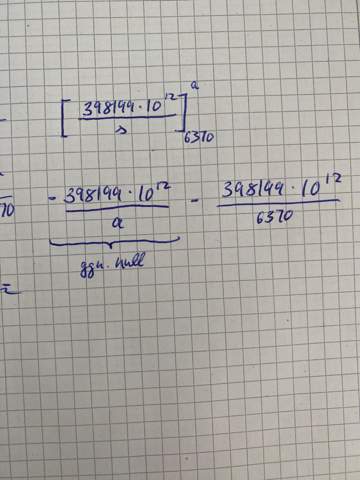 - [ 398199 · 10^12 / s ]_6370^a
70 - 398199 · 10^12 / a - 398199 · 10^12 / 6370
ggn. null
=